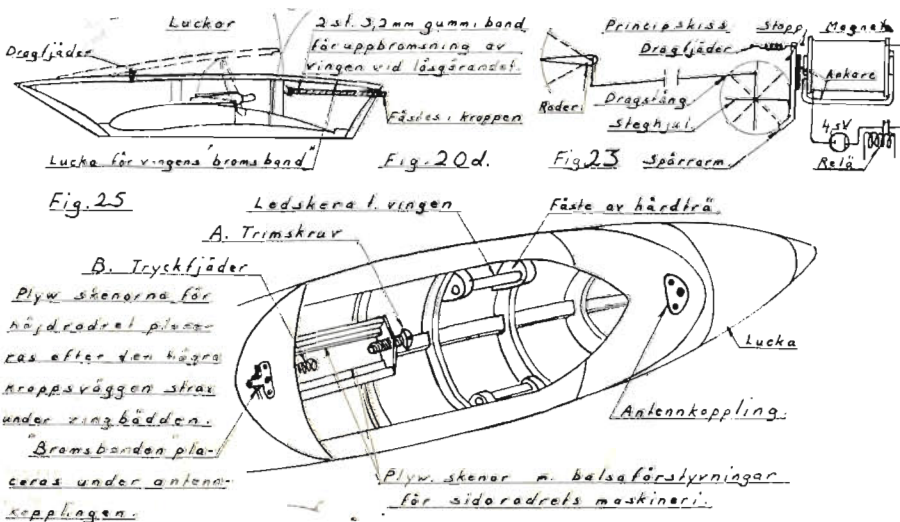 Luckor
Dragfjäder
2 st. 3,2 mm gummiband
för uppbromsning av
vingen vid lösgörandet.
Fästes i kroppen
Lucka för vingens "bromsband"
Fig. 20d.
Principskiss
Stopp
Magnet
Dragfjäder
Ankare
Roder
Dragstång
Steghjul
4,5V
Relä
Fig 23
Spärrarm
Fig. 25
Ledskena f. vingen
Fäste av hårdträ
A. Trimskruv
B. Tryckfjäder
Plyw skenorna för
höjdrodret place-
ras efter den högra
kroppsväggen strax
under vingbädden.
"Bromsbanden" pla-
ceras under antenn-
kopplingen.
Lucka
Antennkoppling.
Plyw. skenor m. balsaförstyvningar
för sidorodrets maskineri.